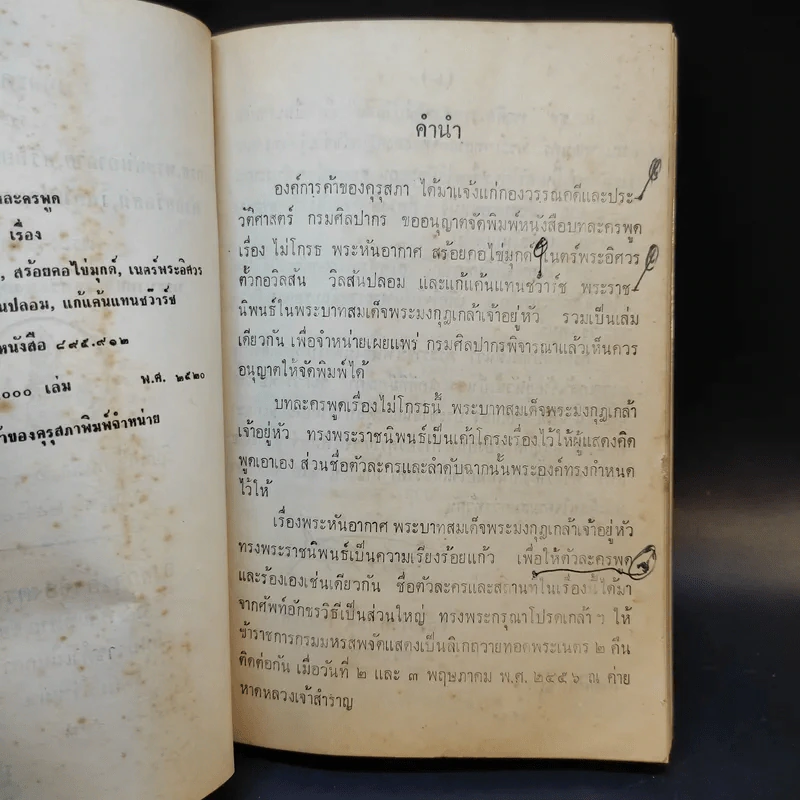 ละครพูด
เรื่อง
, สร้อยคอไข่มุกด์, เนตร์พระอิศวร
นปลอม, แก้แค้นแทนชว๊าร์ช
หนังสือ ๘๙๕.๙๑๒
๐๐๐ เล่ม พ.ศ. ๒๕๒๐
าของคุรุสภาพิมพ์จำหน่าย
คำนำ
องค์การค้าของคุรุสภา ได้มาแจ้งแก่กองวรรณคดีและประ-
วัติศาสตร์ กรมศิลปากร ขออนุญาตจัดพิมพ์หนังสือบทละครพูด
เรื่อง ไม่โกรธ พระหันอากาศ สร้อยคอไข่มุกด์ เนตร์พระอิศวร
ตั๋วกอวิลสัน วิลสันปลอม และแก้แค้นแทนชว๊าร์ช พระราช-
นิพนธ์ในพระบาทสมเด็จพระมงกุฎเกล้าเจ้าอยู่หัว รวมเป็นเล่ม
เดียวกัน เพื่อจำหน่ายเผยแพร่ กรมศิลปากรพิจารณาแล้วเห็นควร
อนุญาตให้จัดพิมพ์ได้
บทละครพูดเรื่องไม่โกรธนี้ พระบาทสมเด็จพระมงกุฎเกล้า
เจ้าอยู่หัว ทรงพระราชนิพนธ์เป็นเค้าโครงเรื่องไว้ให้ผู้แสดงคิด
พูดเอาเอง ส่วนชื่อตัวละครและลำดับฉากนั้นพระองค์ทรงกำหนด
ไว้ให้
เรื่องพระหันอากาศ พระบาทสมเด็จพระมงกุฎเกล้าเจ้าอยู่หัว
ทรงพระราชนิพนธ์เป็นความเรียงร้อยแก้ว เพื่อให้ตัวละครพูด
และร้องเองเช่นเดียวกัน ชื่อตัวละครและสถานที่ในเรื่องนี้ได้มา
จากศัพท์อักขรวิธีเป็นส่วนใหญ่ ทรงพระกรุณาโปรดเกล้า ฯ ให้
ข้าราชการกรมมหรสพจัดแสดงเป็นลิเกถวายทอดพระเนตร ๒ คืน
ติดต่อกัน เมื่อวันที่ ๒ และ ๓ พฤษภาคม พ.ศ. ๒๔๕๖ ณ ค่าย
หาดหลวงเจ้าสำราญ